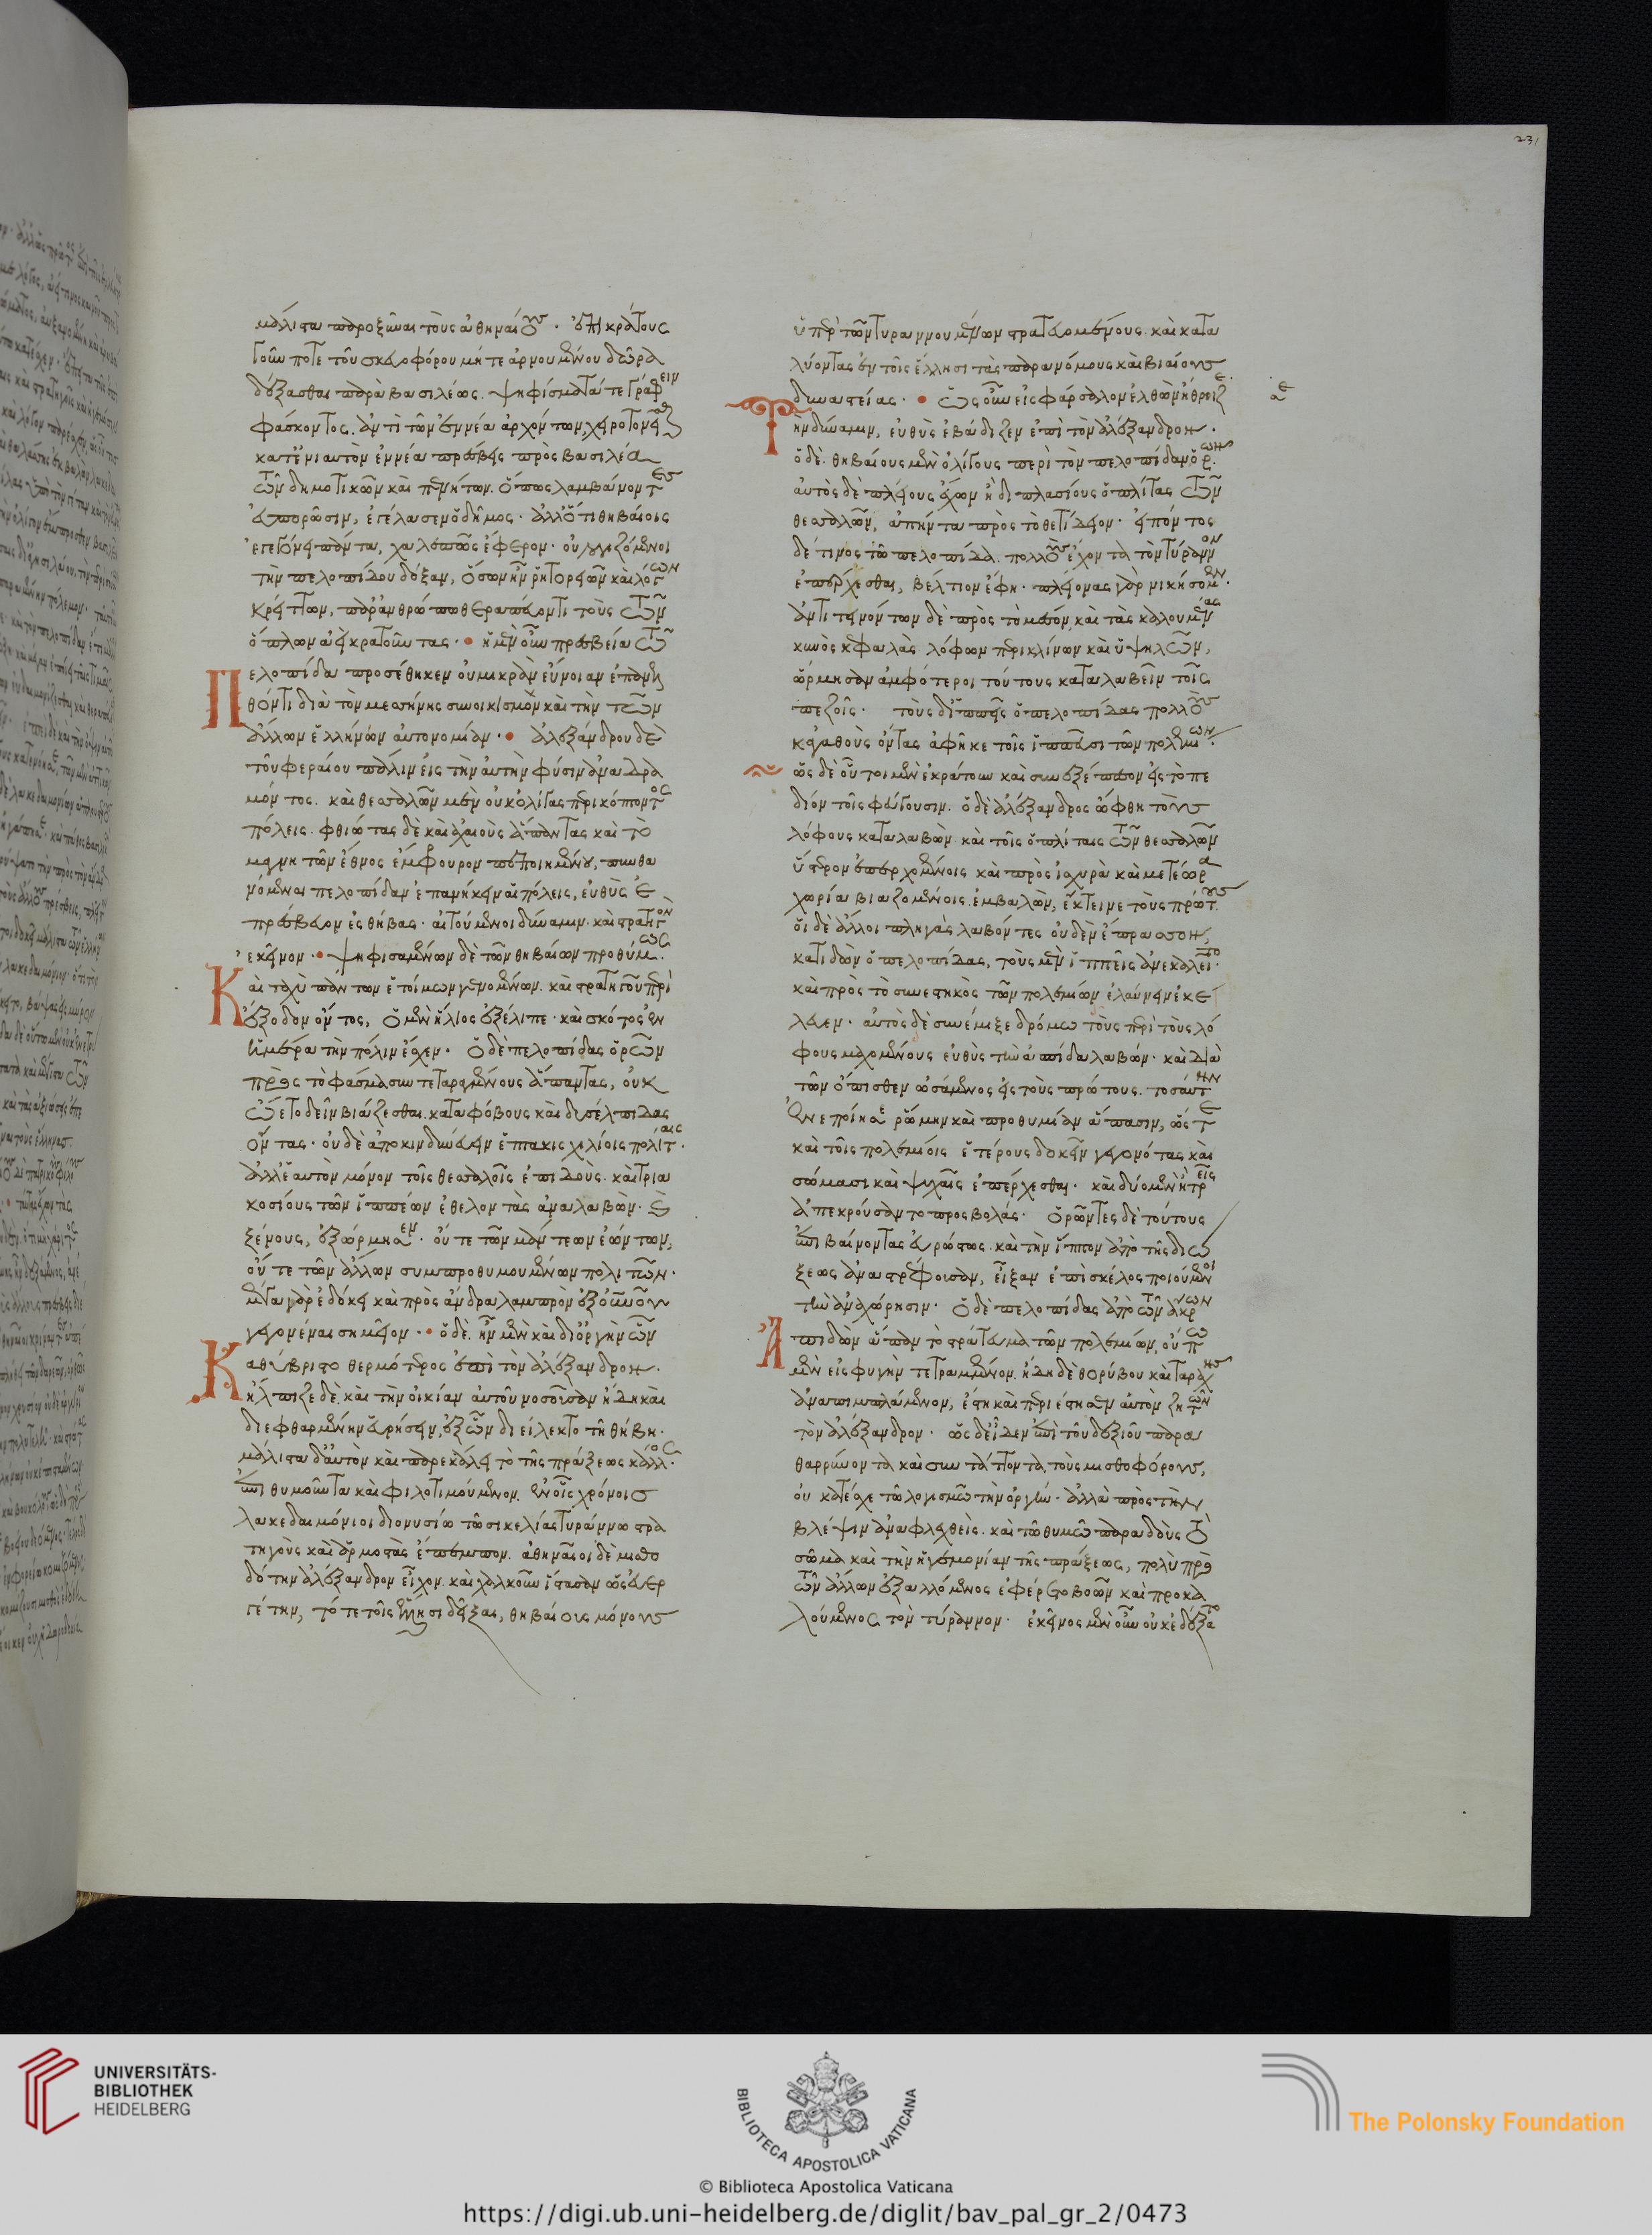 μάλιστα παροξῦναι τοὺς ἀθηναίους. ἐπικράτους
γοῦν ποτε τοῦ σκευοφόρου μήτε ἀρνουμένου δῶρα
δέξασθαι παρὰ βασιλέως. ψηφίσματά τε γράφειν
φάσκοντος. ἀντὶ τῶν ἐννέα ἀρχόντων, χειροτονεῖσθαι
κατ' ἐνιαυτὸν ἐννέα πρέσβεις πρὸς βασιλέα
τῶν δημοτικῶν καὶ πενήτων. ὅπως λαμβάνοντες
εὐπορῶσιν, ἐγέλασεν ὁ δῆμος. ἀλλ' ὅτι θηβαίοις
ἐγεγόνει πάντα, χαλεπῶς ἔφερον. οὐ λογιζόμενοι
τὴν πελοπίδου δόξαν, ὅσων ἦν ῥητορειῶν καὶ λόγων
κρείττων, παρ' ἀνθρώπω θεραπεύοντι τοὺς τῶν
ὅπλων ἀεὶ κρατοῦντας. ἡ μὲν οὖν πρεσβεία τῶ
Πελοπίδα προσέθηκεν οὐ μικρὰν εὔνοιαν ἐπανελ
θόντι διὰ τὸν μεσήνης συνοικισμὸν καὶ τὴν τῶν
ἄλλων ἑλλήνων αὐτονομίαν. ἀλεξάνδρου δὲ
τοῦ φεραίου πάλιν εἰς τὴν αὐτὴν φύσιν ἀναδρα
μόντος. καὶ θεσσαλῶν μὲν οὐκ ὀλίγας περικόπτοντος
πόλεις. φθιώτας δὲ καὶ ἀχαιοὺς ἅπαντας καὶ τὸ
μαγνητῶν ἔθνος ἔμφρουρον πεποιημένου, πυνθα
νόμεναι πελοπίδαν ἐπανήκειν αἱ πόλεις, εὐθὺς ἐ
πρέσβευον ἐς θήβας. αἰτούμενοι δύναμιν. καὶ στρατηγὸν
ἐκεῖνον. ψηφισαμένων δὲ τῶν θηβαίων προθύμως.
Καὶ ταχὺ πάντων ἑτοίμων γενομένων. καὶ στρατηγοῦ περὶ
ἔξοδον ὄντος, ὁ μὲν ἥλιος ἐξέλιπε. καὶ σκότος ἐν
ἡμέρα τὴν πόλιν ἔσχεν. ὁ δὲ πελοπίδας ὁρῶν
πρὸς τὸ φάσμα συντεταραγμένους ἅπαντας, οὐκ
ὤετο δεῖν βιάζεσθαι καταφόβους καὶ δυσέλπιδας
ὄντας. οὐδὲ ἀποκινδυνεύειν ἑπτακισχιλίοις πολίταις.
ἀλλ' ἑαυτὸν μόνον τοῖς θεσσαλοῖς ἐπιδοὺς. καὶ τρια
κοσίους τῶν ἱππέων ἐθελοντὰς ἀναλαβὼν. καὶ
ξένους, ἐξώρμησεν. οὔτε τῶν μάντεων ἐώντων,
οὔτε τῶν ἄλλων συμπροθυμουμένων πολιτῶν.
μέγα γὰρ ἐδόκει καὶ πρὸς ἄνδρα λαμπρὸν ἐξ οὐρανοῦ
γεγονέναι σημεῖον. ὁ δὲ. ἦν μὲν καὶ δι' ὀργὴν ὧν
Καθύβριστο θερμότερος ἐπὶ τὸν ἀλέξανδρον.
ἤλπιζε δὲ. καὶ τὴν οἰκίαν αὐτοῦ νοσοῦσαν ἤδη καὶ
διεφθαρμένην εὑρήσειν, ἐξ ὧν διείλεκτο τῆ θήβη.
μάλιστα δ' αὐτὸν καὶ παρεκάλει τὸ τῆς πράξεως κάλλος.
ἐπιθυμοῦντα καὶ φιλοτιμούμενον. ἐν οἷς χρόνοις
λακεδαιμόνιοι διονυσίω τῶ σικελίας τυράννω στρα
τηγοὺς καὶ ἁρμοστὰς ἔπεμπον. ἀθηναῖοι δὲ μισθο
δότην ἀλέξανδρον εἶχον. καὶ χαλκοῦν ἵστασαν ὡς εὐερ
γέτην, τότε τοῖς ἕλλησι δεῖξαι, θηβαίους μόνους
231
ὑπὲρ τῶν τυραννουμένων στρατευομένους. καὶ κατα
λύοντας ἐν τοῖς ἕλλησι τὰς παρανόμους καὶ βιαίους
δυναστείας. ὡς οὖν εἰς φάρσαλον ἐλθὼν ἤθροιζε
Τὴν δύναμιν, εὐθὺς ἐβάδιζεν ἐπὶ τὸν ἀλέξανδρον.
ὁ δὲ. θηβαίους μὲν ὀλίγους περὶ τὸν πελοπίδαν ὁρῶν.
αὐτὸς δὲ πλείους ἔχων ἢ διπλασίους ὁπλίτας τῶν
θεσσαλῶν, ἀπήντα πρὸς τὸ θετίδειον. εἰπόντος
δέ τινος τῶ πελοπίδα. πολλοὺς ἔχοντα τὸν τύραννον
ἐπέρχεσθαι, βέλτιον ἔφη. πλείονας γὰρ νικήσομεν.
ἀντιτεινόντων δὲ πρὸς τὸ μέσον, καὶ τὰς καλουμένας
κυνὸς κεφαλὰς λόφων περικλίνων καὶ ὑψηλῶν,
ὥρμησαν ἀμφότεροι τούτους καταλαβεῖν τοῖς
πεζοῖς. τοὺς δ' ἱππεῖς ὁ πελοπίδας πολλοὺς
κἀγαθοὺς ὄντας ἀφῆκε τοῖς ἱππεῦσι τῶν πολεμίων.
ὡς δὲ οὗτοι μὲν ἐκράτουν καὶ συνεξέπεσον εἰς τὸ πε
δίον τοῖς φεύγουσιν. ὁ δὲ ἀλέξανδρος ὤφθη τοὺς
λόφους καταλαβὼν. καὶ τοῖς ὁπλίταις τῶν θεσσαλῶν
ὕστερον ἐπερχομένοις καὶ πρὸς ἰσχυρὰ καὶ μετέωρα
χωρία βιαζομένοις. ἐμβαλὼν, ἔκτεινε τοὺς πρώτους.
οἱ δὲ ἄλλοι πληγὰς λαβόντες οὐδὲν ἔπρασσον,
κατιδὼν ὁ πελοπίδας, τοὺς μὲν ἱππεῖς ἀνεκαλεῖτο.
καὶ πρὸς τὸ συνεστηκὸς τῶν πολεμίων ἐλαύνειν ἐκέ
λευεν. αὐτὸς δὲ συνέμιξε δρόμω τοὺς περὶ τοὺς λό
φους μαχομένους εὐθὺς τὴν ἀσπίδα λαβών. καὶ διὰ
τῶν ὄπισθεν ὠσάμενος εἰς τοὺς πρώτους. τοσαύτην
ἐνεποίησε ῥώμην καὶ προθυμίαν ἅπασιν, ὥστε
καὶ τοῖς πολεμίοις ἑτέρους δοκεῖν γεγονότας καὶ
σώμασι καὶ ψυχαῖς ἐπέρχεσθαι. καὶ δύο μὲν ἢ τρεῖς
ἀπεκρούσαντο προσβολάς. ὁρῶντες δὲ τούτους
ἐπιβαίνοντας εὐρώστως. καὶ τὴν ἵππον ἀπὸ τῆς διώ
ξεως ἀναστρέφουσαν, εἶξαν ἐπὶ σκέλος ποιούμενοι
τὴν ἀναχώρησιν. ὁ δὲ πελοπίδας ἀπὸ τῶν ἄκρων
Ἀπιδὼν ἅπαν τὸ στράτευμα τῶν πολεμίων, οὔπω
μὲν εἰς φυγὴν τετραμμένον. ἤδη δὲ θορύβου καὶ ταραχῆς
ἀναπιμπλάμενον, ἔστη καὶ περιέστησεν αὐτὸν ζητῶν
τὸν ἀλέξανδρον. ὡς δ' εἶδεν ἐπὶ τοῦ δεξιοῦ παρα
θαρρύνοντα καὶ συντάττοντα τοὺς μισθοφόρους,
οὐ κατέσχε τῶ λογισμῶ τὴν ὀργὴν. ἀλλὰ πρὸς τὴν
βλέψιν ἀναφλεχθεὶς. καὶ τῶ θυμῶ παραδοὺς τὸ
σῶμα καὶ τὴν ἡγεμονίαν τῆς πράξεως, πολὺ πρὸ
τῶν ἄλλων ἐξαλλόμενος ἐφέρετο βοῶν καὶ προκα
λούμενος τὸν τύραννον. ἐκεῖνος μὲν οὖν οὐκ ἐδέξατο
UNIVERSITÄTS-
BIBLIOTHEK
HEIDELBERG
BIBLIOTECA APOSTOLICA VATICANA
The Polonsky Foundation
© Biblioteca Apostolica Vaticana
https://digi.ub.uni-heidelberg.de/diglit/bav_pal_gr_2/0473